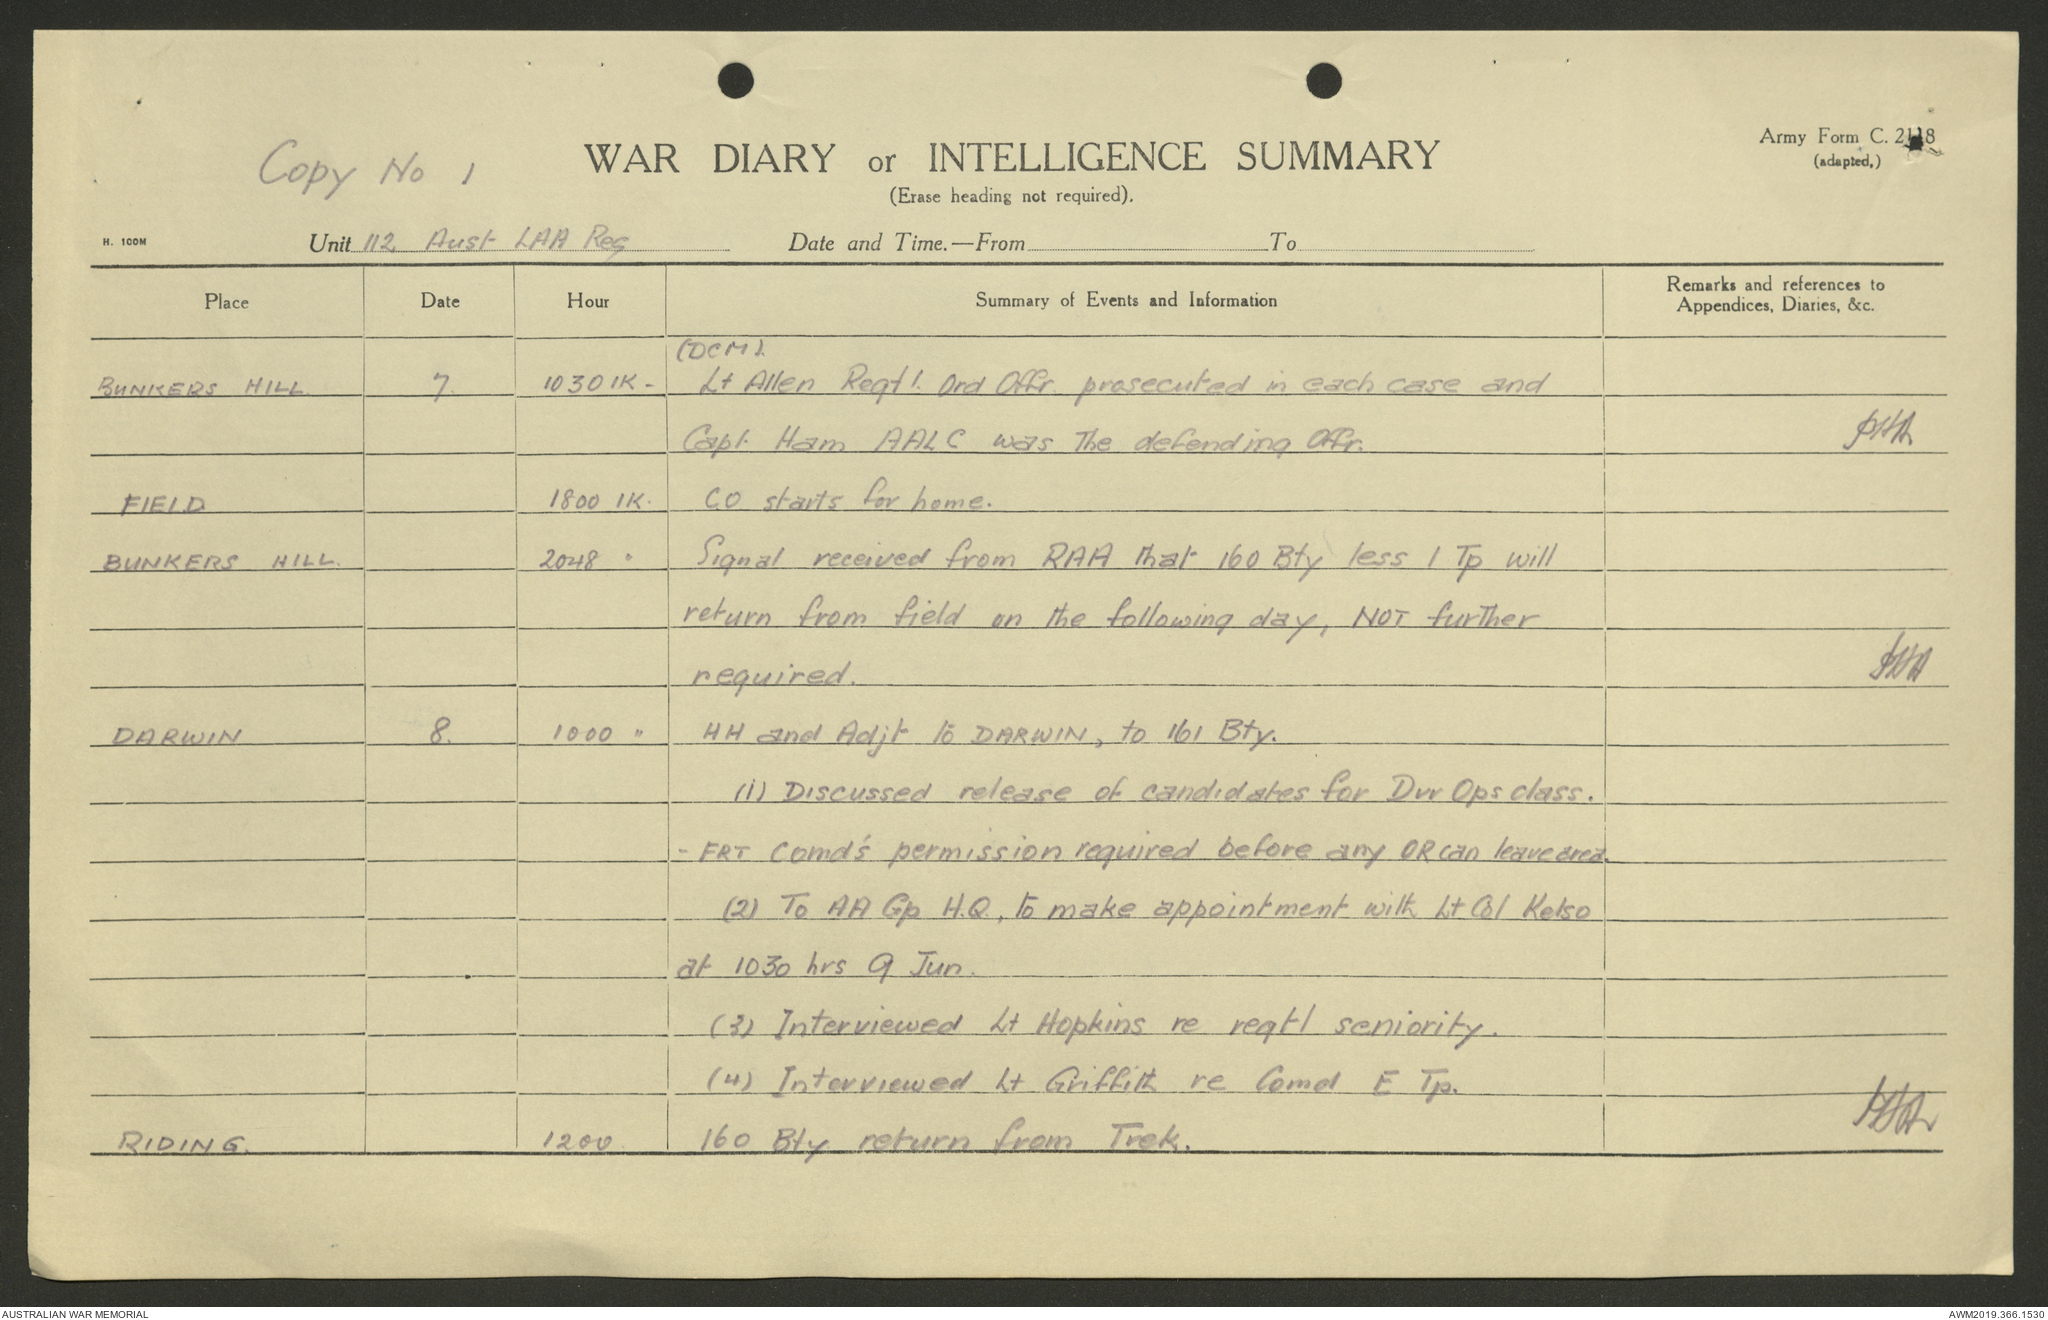 Copy No 1
WAR DIARY or INTELLIGENCE SUMMARY
(Erase heading not required).
Army Form C. 2118
(adapted.)
H. 100M
Unit 112 Aust LAA Reg Date and Time.—From To
Place Date Hour Summary of Events and Information Remarks and references to
Appendices, Diaries, &c.
(DCM).
BUNKERS HILL 7. 1030 IK - Lt Allen Reqt'l. Ord Offr. prosecuted in each case and
Capt. Ham AALC was the defending Offr.
FIELD 1800 IK. CO starts for home.
BUNKERS HILL. 2048 " Signal received from RAA that 160 Bty less 1 Tp will
return from field on the following day, NOT further
required.
DARWIN 8. 1000 " HH and Adjt to DARWIN, to 161 Bty.
(1) Discussed release of candidates for Dvr Ops class.
- FRT Comd's permission required before any OR can leave area.
(2) To AA Gp H.Q., to make appointment with Lt Col Kelso
at 1030 hrs 9 Jun.
(3) Interviewed Lt Hopkins re reqtl seniority.
(4) Interviewed Lt Griffith re Comd E Tp.
RIDING. 1200. 160 Bty return from Trek.
AUSTRALIAN WAR MEMORIAL AWM2019.366.1530